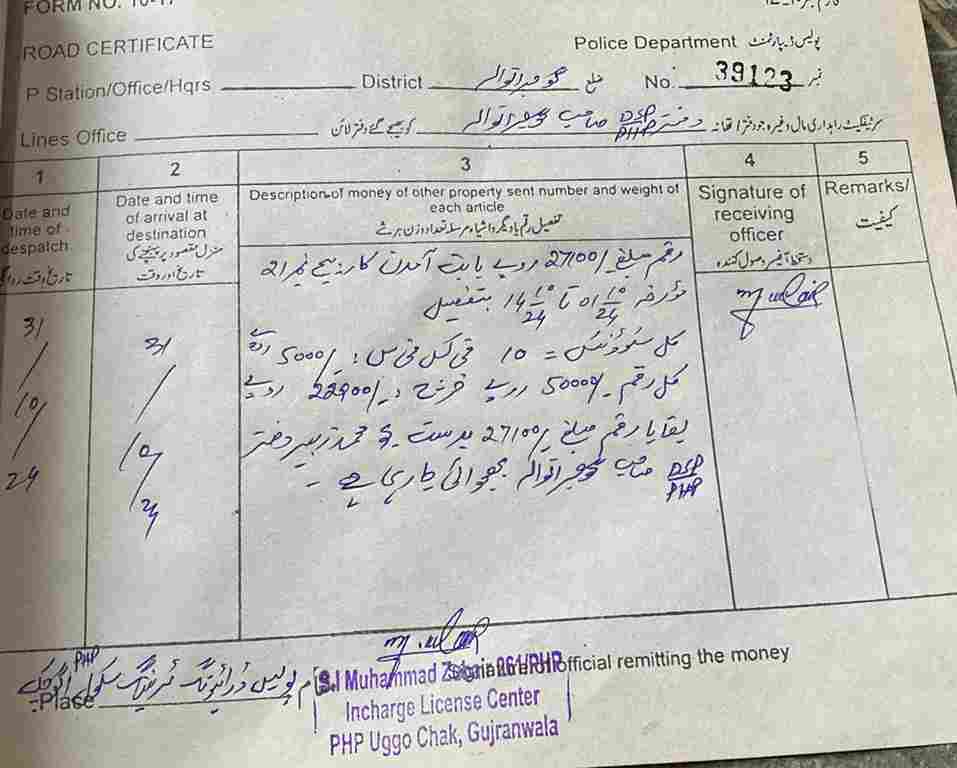 FORM NO. 10-17
ROAD CERTIFICATE
Police Department پولیس ڈیپارٹمنٹ
P Station/Office/Hqrs District گوجرانوالہ ضلع No. 39123 نمبر
Lines Office کو بھیجے گئے دفتر لائن دفتر DSP/PHP صاحب گوجرانوالہ سرٹیفکیٹ راہداری مال وغیرہ جو دفتر / تھانہ
1 2 3 4 5
Date and time of despatch
Date and time of arrival at destination
منزل مقصود پر پہنچنے کی تاریخ اور وقت
Description of money of other property sent number and weight of each article
تفصیل رقم یا دیگر اشیاء مرسلہ تعداد وزن ہر شے
Signature of receiving officer
دستخط آفیسر وصول کنندہ
Remarks/
کیفیت
31/10/24
31/10/24
رقم مبلغ 27100/ روپے بابت آمدن کار بیج نمبر 21
مورخہ 01 10/24 تا 14 10/24 بتفصیل
کل سٹوڈنٹس = 10 فی کس فیس: 5000/ روپے
کل رقم 50000/ روپے خرچ: 22900/ روپے
بقایا رقم مبلغ 27100/ بدست محمد زبیر دفتر
DSP/PHP صاحب گوجرانوالہ بھجوائی جا رہی ہے -
official remitting the money
Place پولیس ڈرائیونگ ٹریننگ سکول PHP
S.I Muhammad Zubair 961/PHP
Incharge License Center
PHP Uggo Chak, Gujranwala